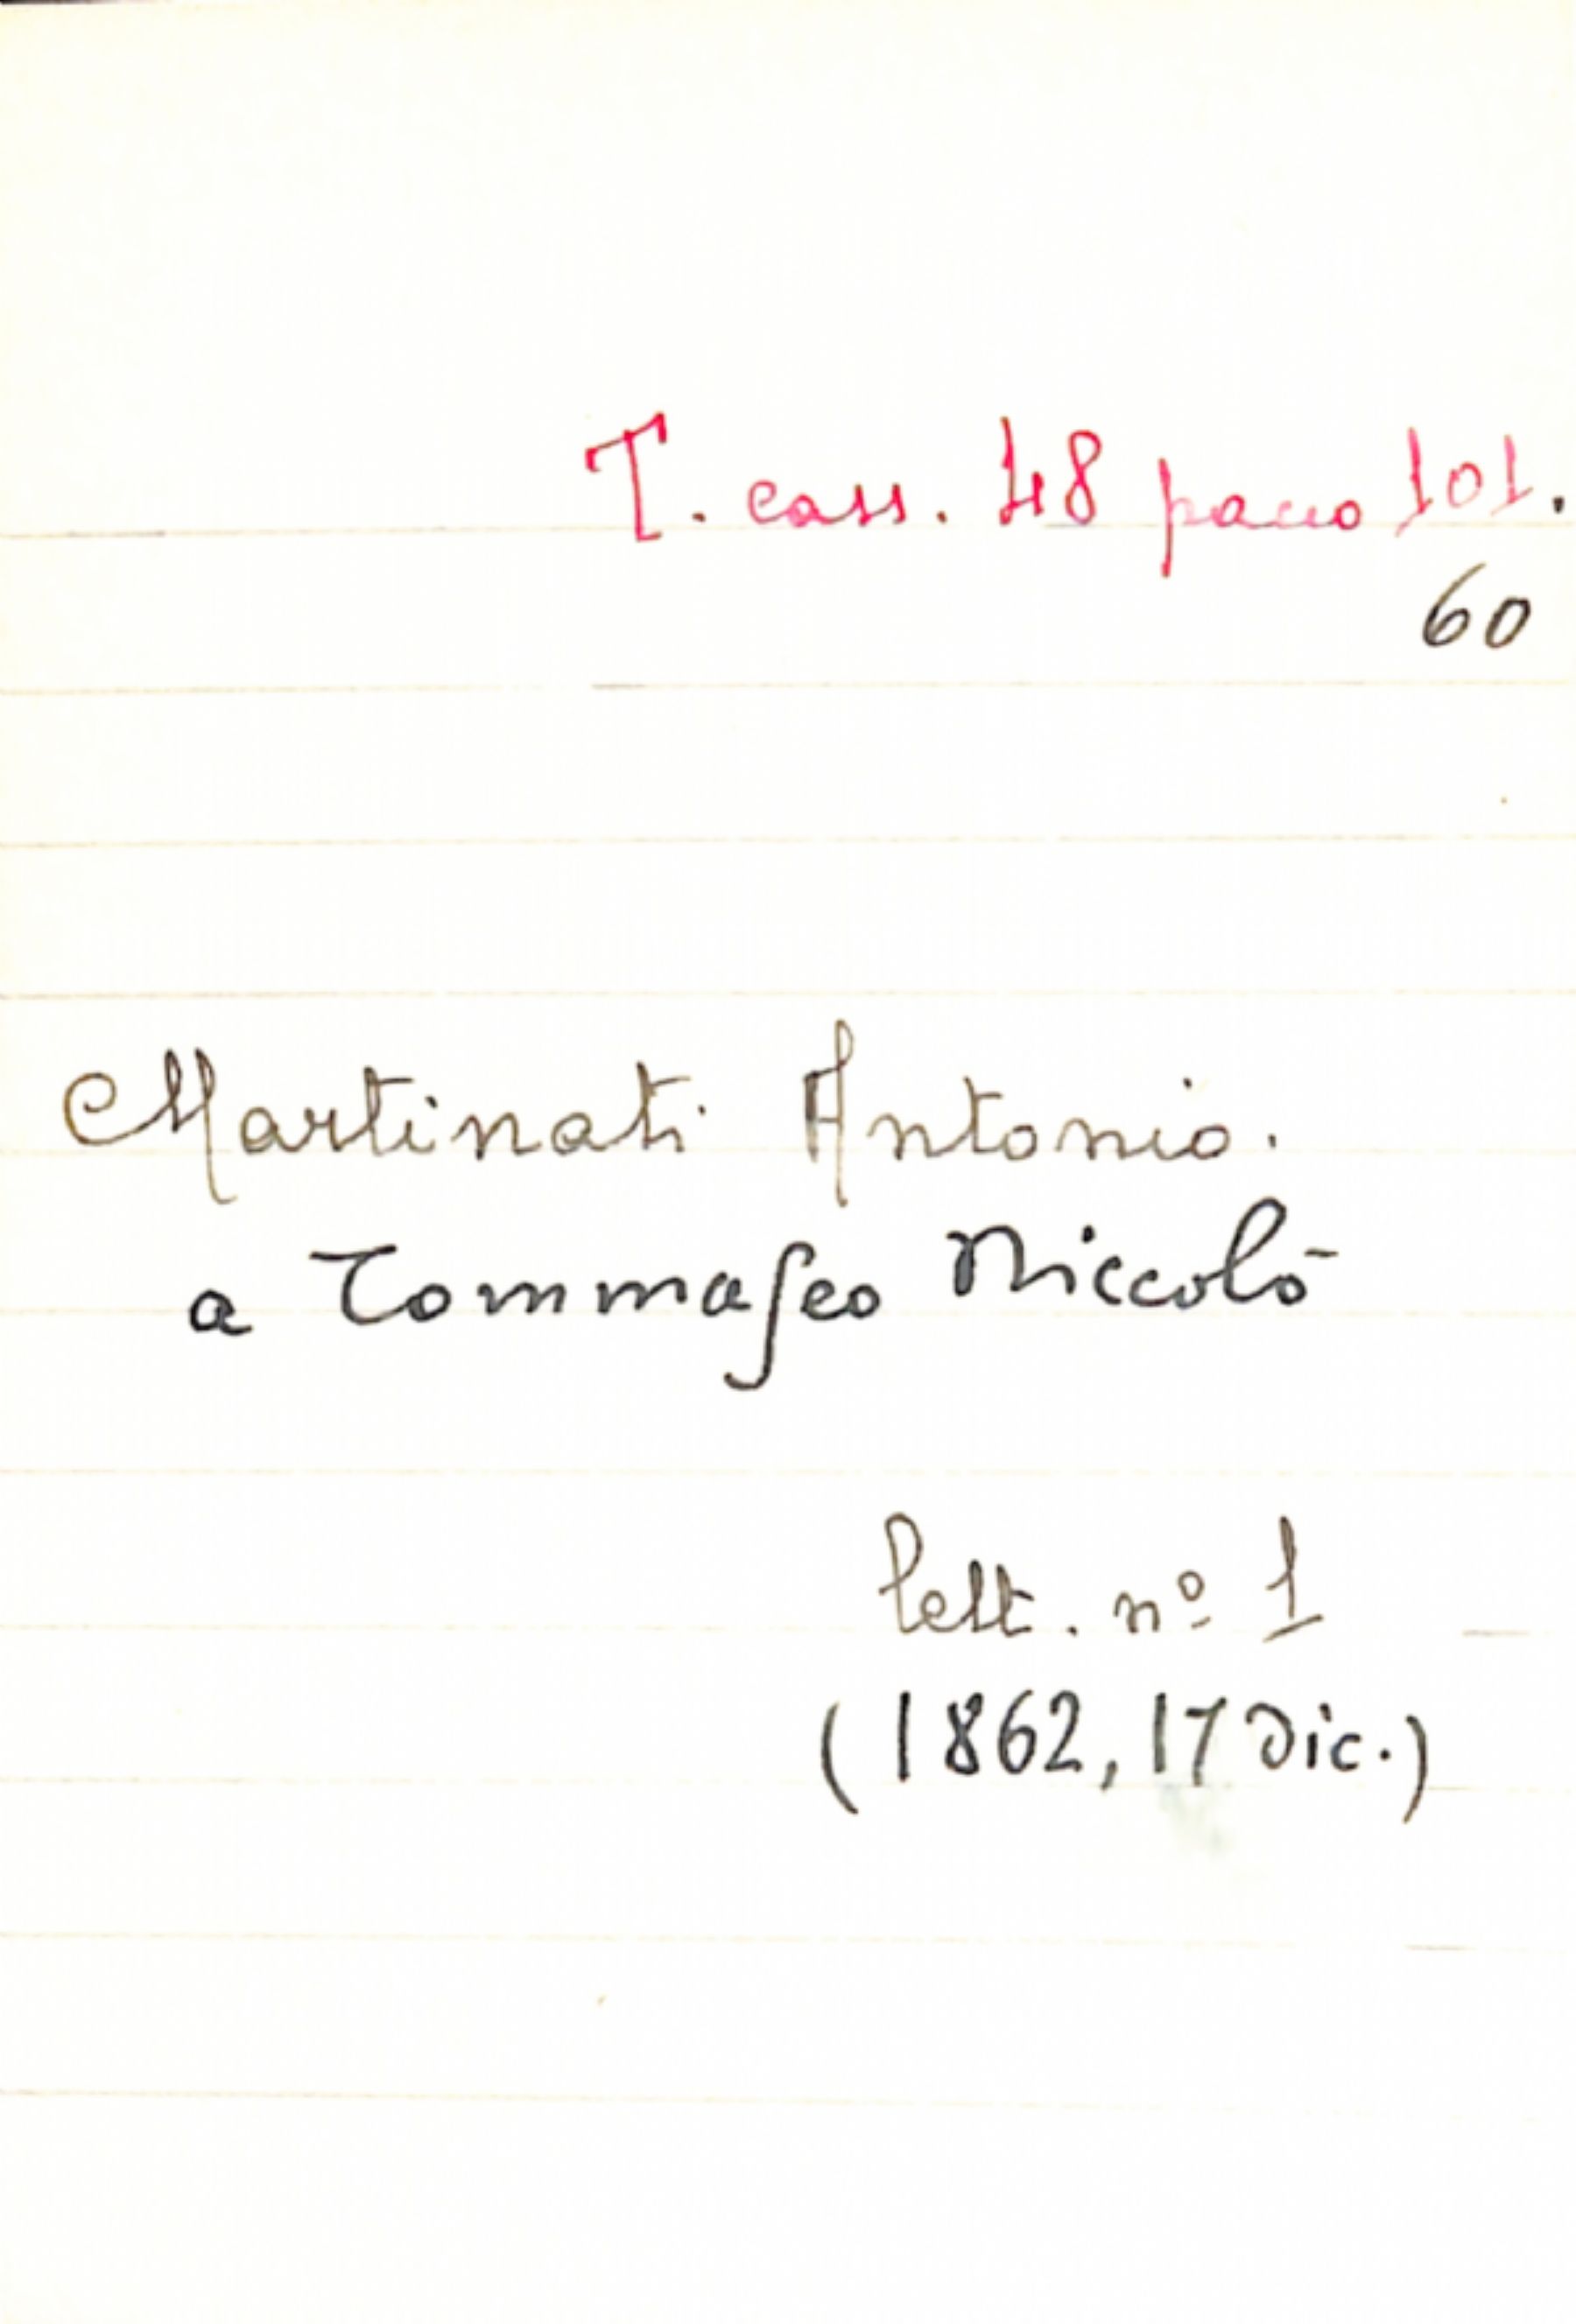 T. cass. 48 pacco 101.
60
Martinati Antonio.
a Tommaseo Niccolò
lett. nº 1
(1862, 17 Dic.)